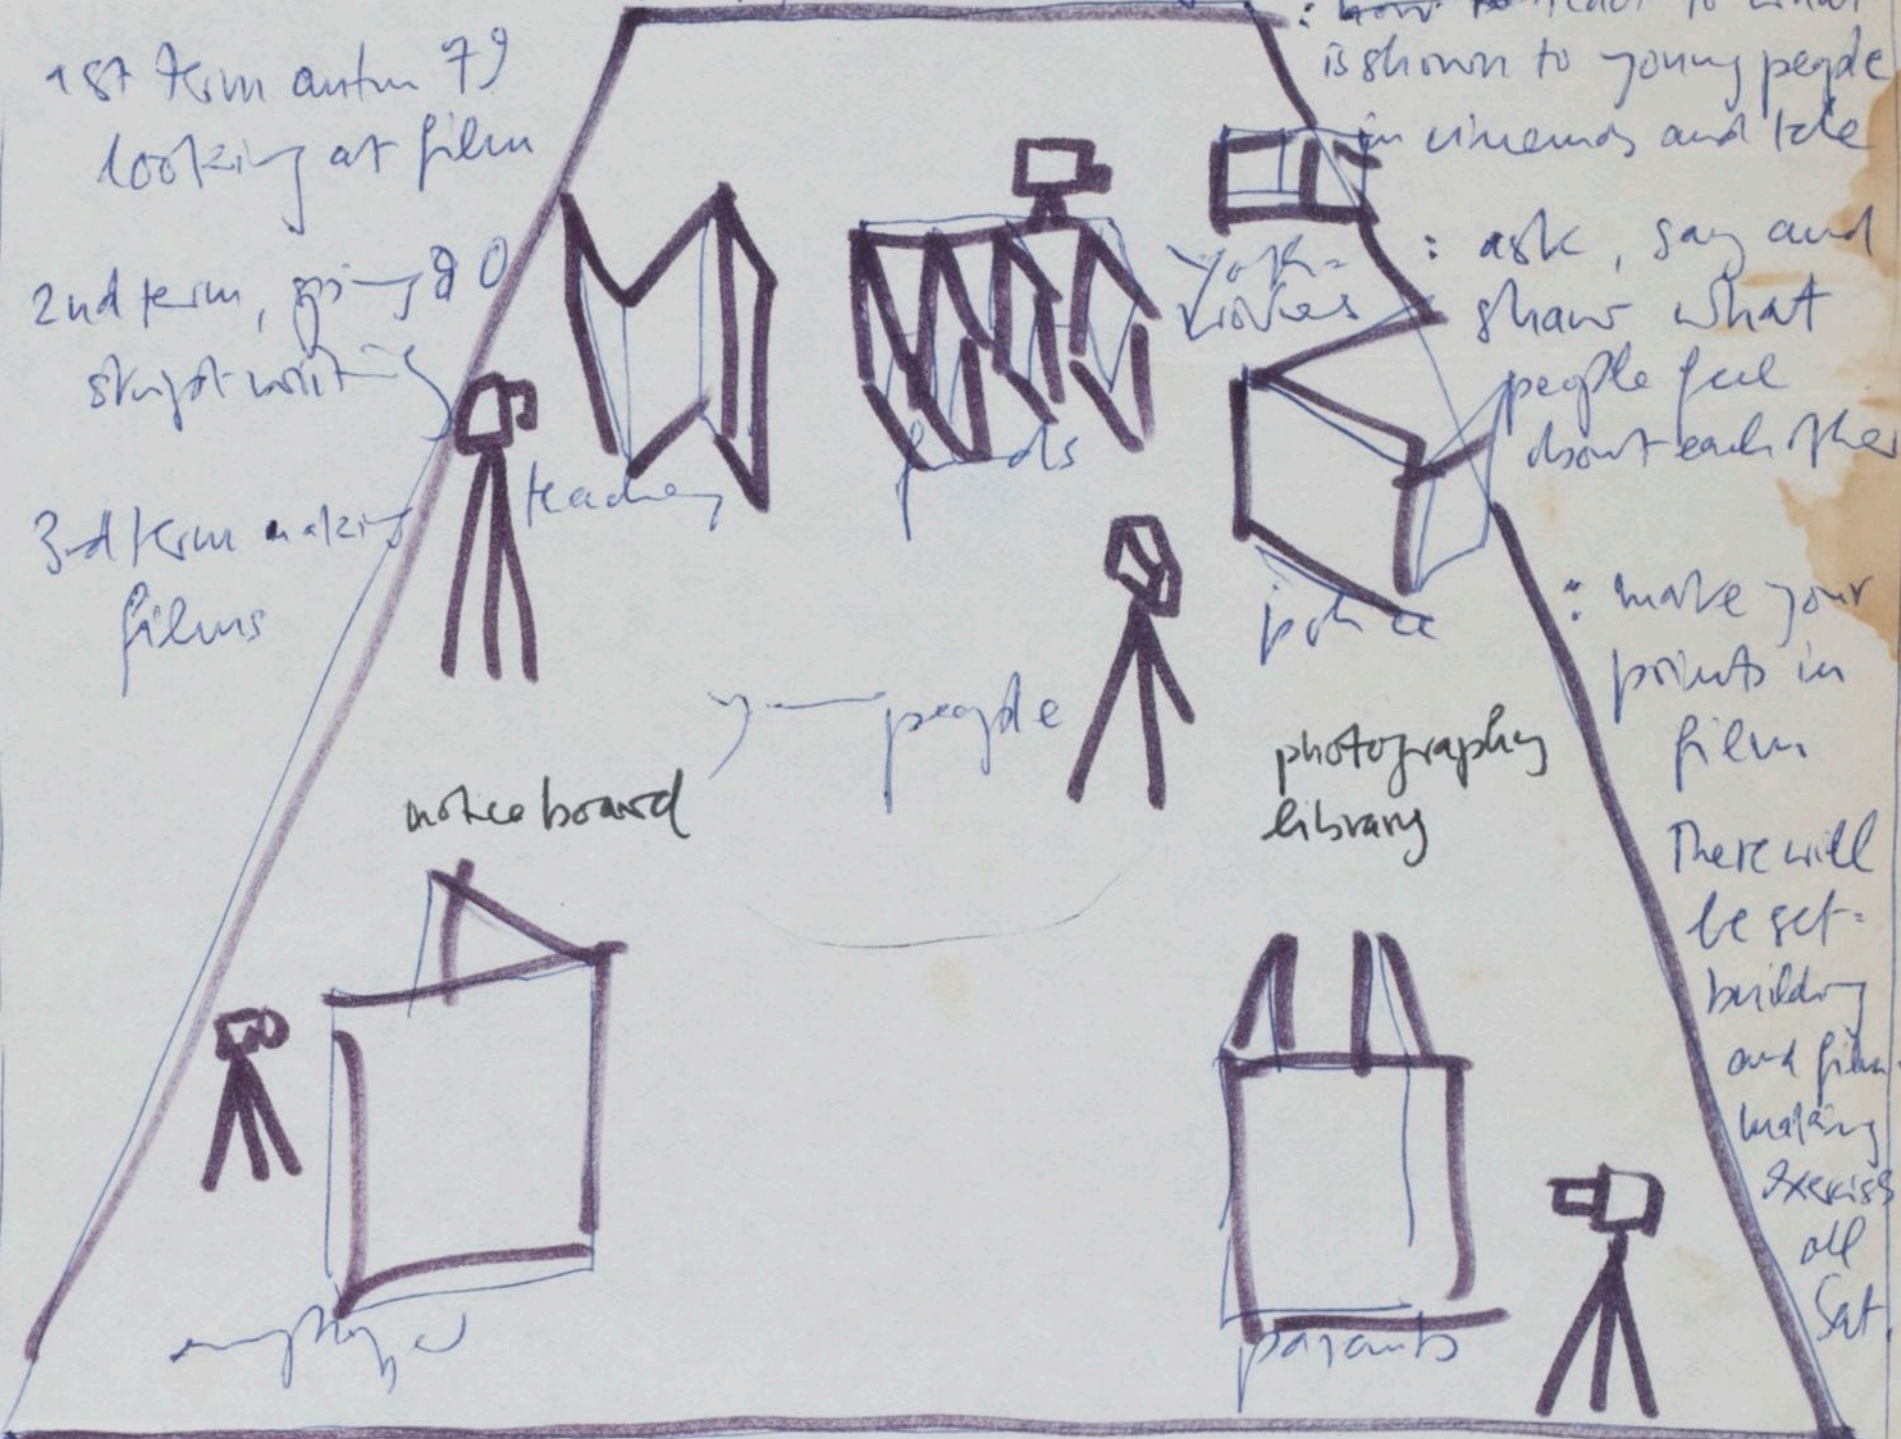 1st term autm 79
looking at film
2nd term, sping 80
skript writing
3rd term making
films
: how to react to what
is shown to young people
in cinemas and tele
: ask, say and
shaw what
people feel
about each other
: make your
points in
film
There will
be set-
building
and film-
making
exercises
all
Sat.
teachers
friends
police
y people
notice board
photography
library
employers
parants